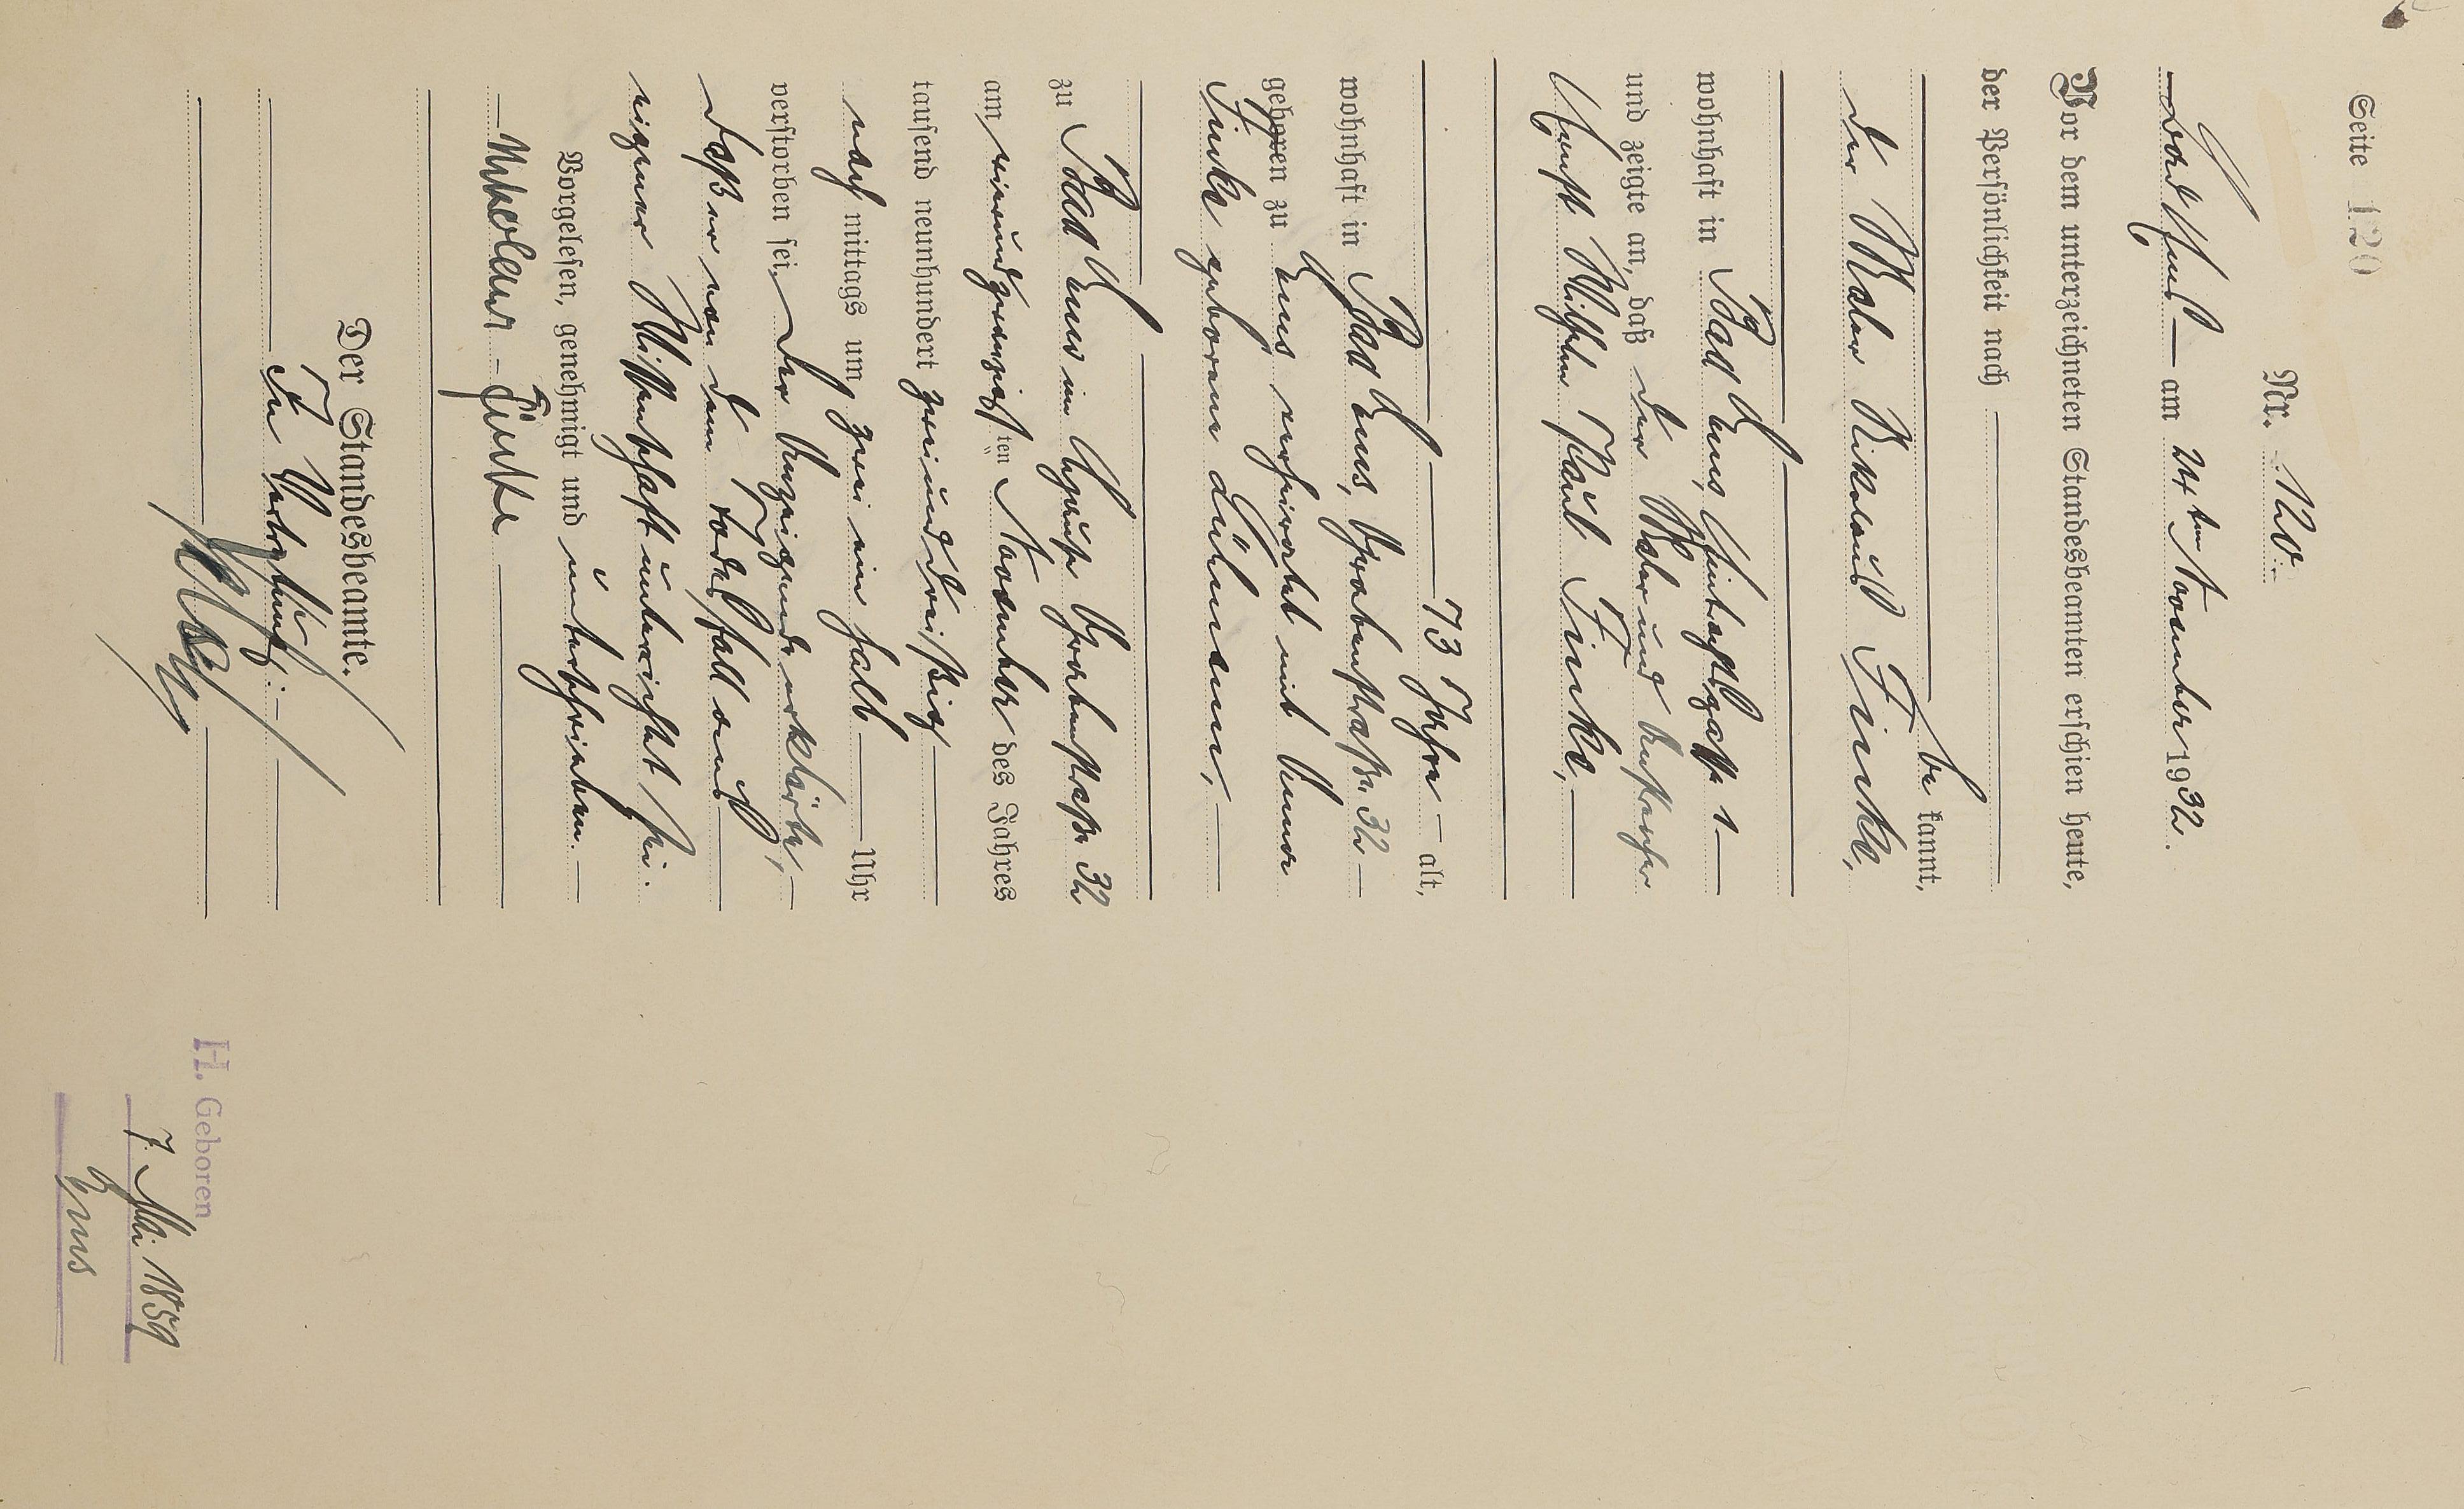 Seite 120
Nr. 120.
Bad Ems am 24ten November 1932.
Vor dem unterzeichneten Standesbeamten erschien heute,
der Persönlichkeit nach
be kannt,
der Maler Nikolaus Finke,
wohnhaft in Bad Ems, 1
und zeigte an, daß der Maler und Anstreicher
Ernst Wilhelm Paul Finke,
73 Jahre alt,
wohnhaft in Bad Ems, Grabenstraße 32
geboren zu Ems verheiratet mit Anna
Finke geborene
zu Bad Ems im Hause Grabenstraße 32
am vierundzwanzigsten November des Jahres
tausend neunhundert zweiunddreißig
nach mittags um zwei ein halb Uhr
verstorben sei. Der Anzeigende erklärte,
daß er von dem Todesfall aus
eigener Wissenschaft unterrichtet sei.
Vorgelesen, genehmigt und unterschrieben.
Nikolaus Finke
Der Standesbeamte.
In Vertretung:
H. Geboren
7. Mai 1859
Ems